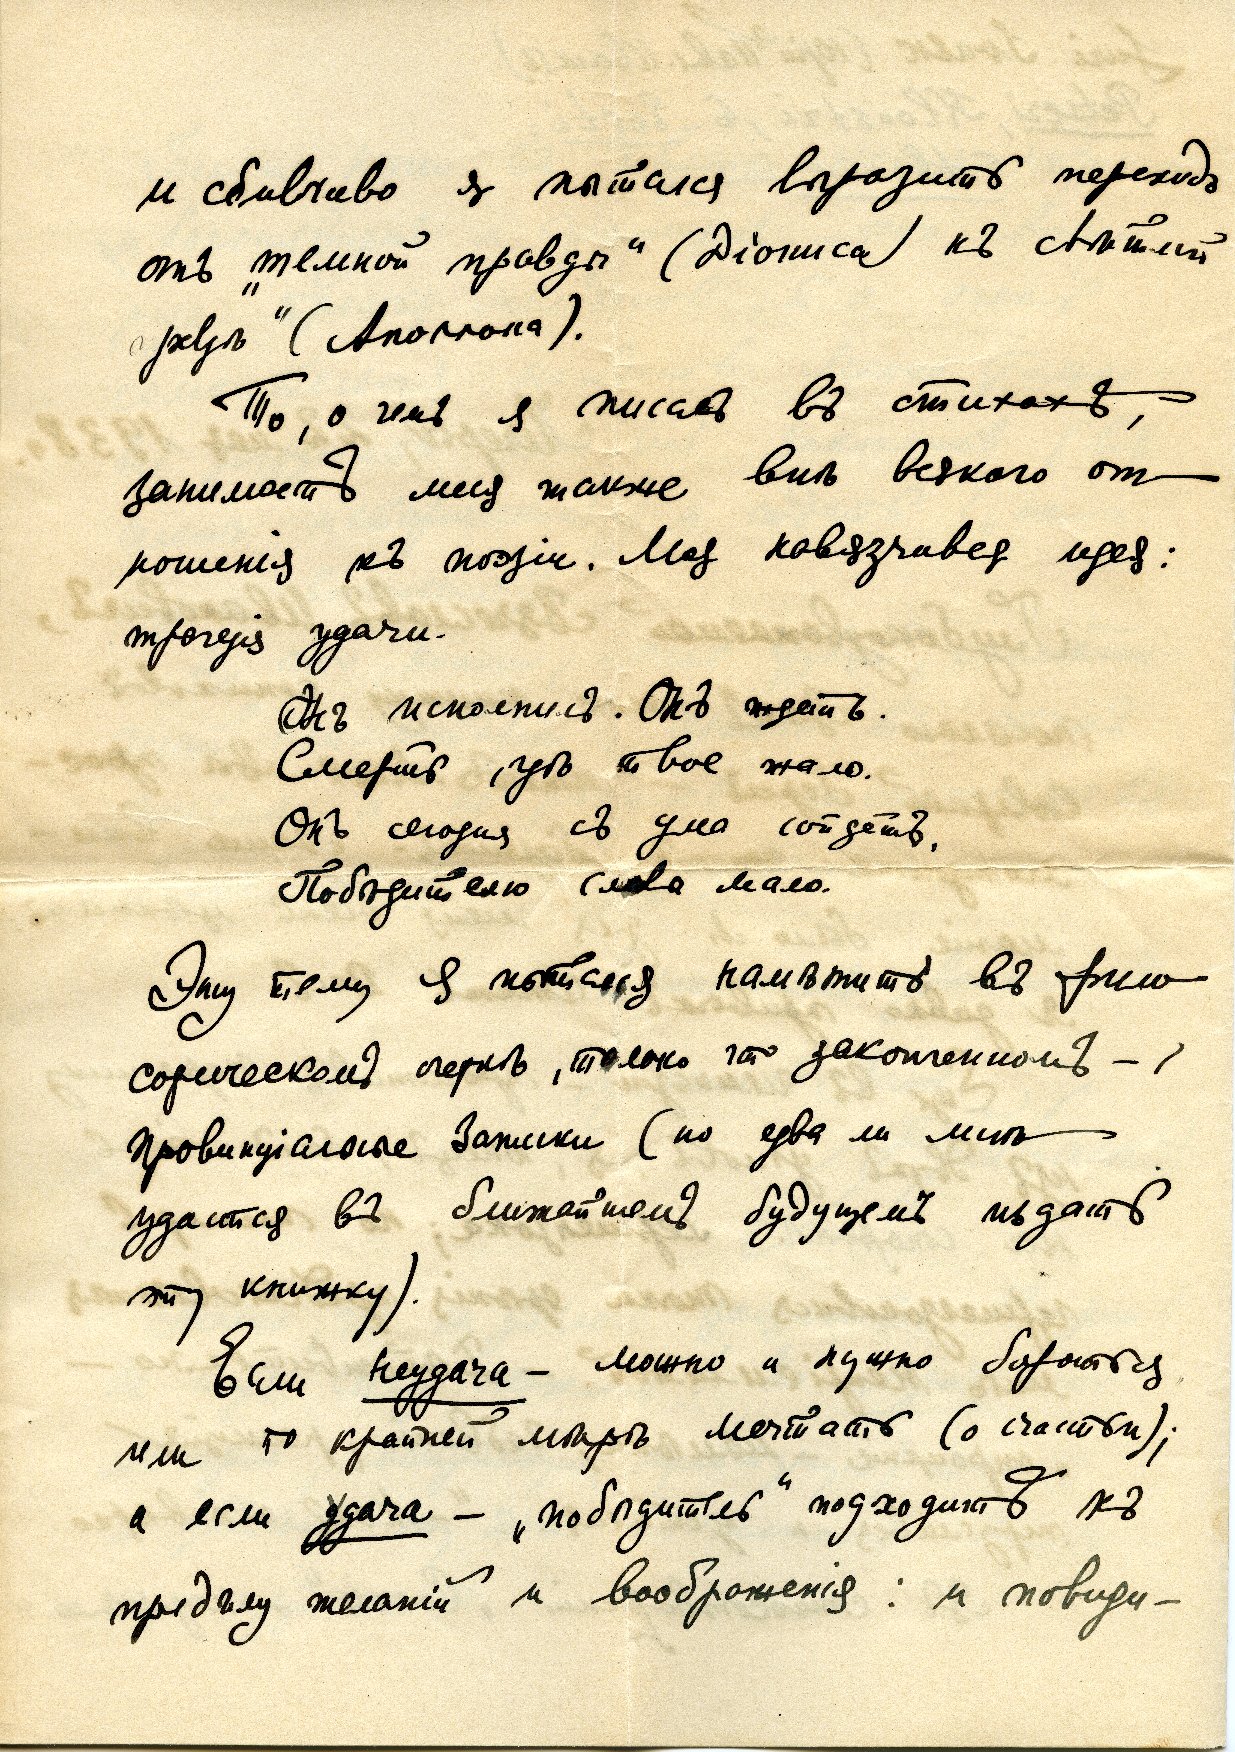 и сбивчиво я пытался выразить переходъ
отъ „темной правды“ (Діониса) къ свѣтлой
" " (Аполлона).
То, о чемъ я писалъ въ стихахъ,
занимаетъ меня также внѣ всякого от—
ношенія къ поэзіи. Моя навязчивая идея:
трагедія удачи.
Онъ исполнилъ. Онъ ждетъ.
Смерть, гдѣ твое жало.
Онъ сегодня съ ума сойдетъ,
Побѣдителю слова мало.
Эту тему я пытался намѣтить въ фило—
софическомъ очеркѣ, только что законченномъ —
Провинціальные Записки (но едва ли мнѣ—
удастся въ ближайшемъ будущемъ издать
эту книжку).
Если неудача — можно и нужно бороться
или по крайней мѣрѣ мечтать (о счастьи);
а если удача — „побѣдитель“ подходитъ къ
предѣлу желаній и воображенія: и повиди—